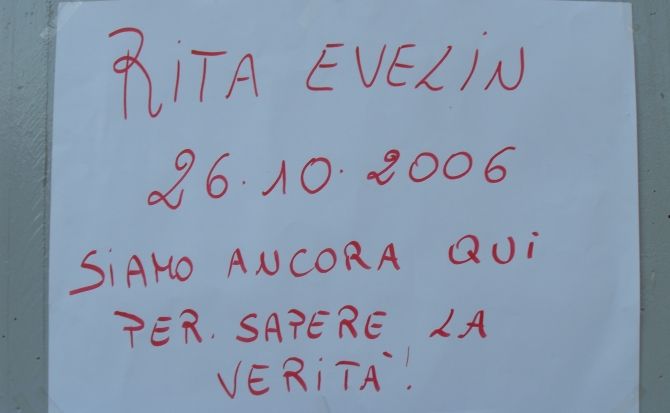 RITA EVELIN
26.10.2006
SIAMO ANCORA QUI
PER. SAPERE LA
VERITÀ!